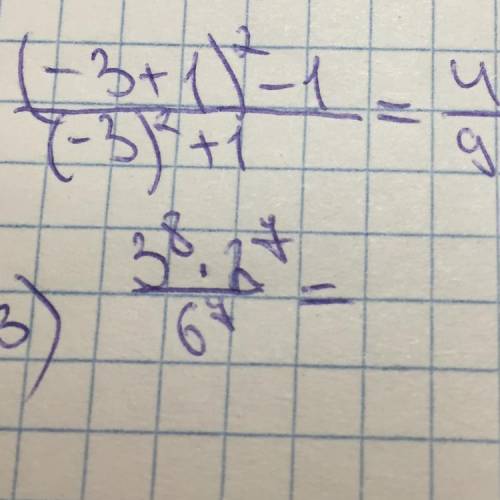 ((-3+1)² - 1)/((-3)² + 1) = 4/9
3) (3⁸ · 2⁷)/6⁷ =